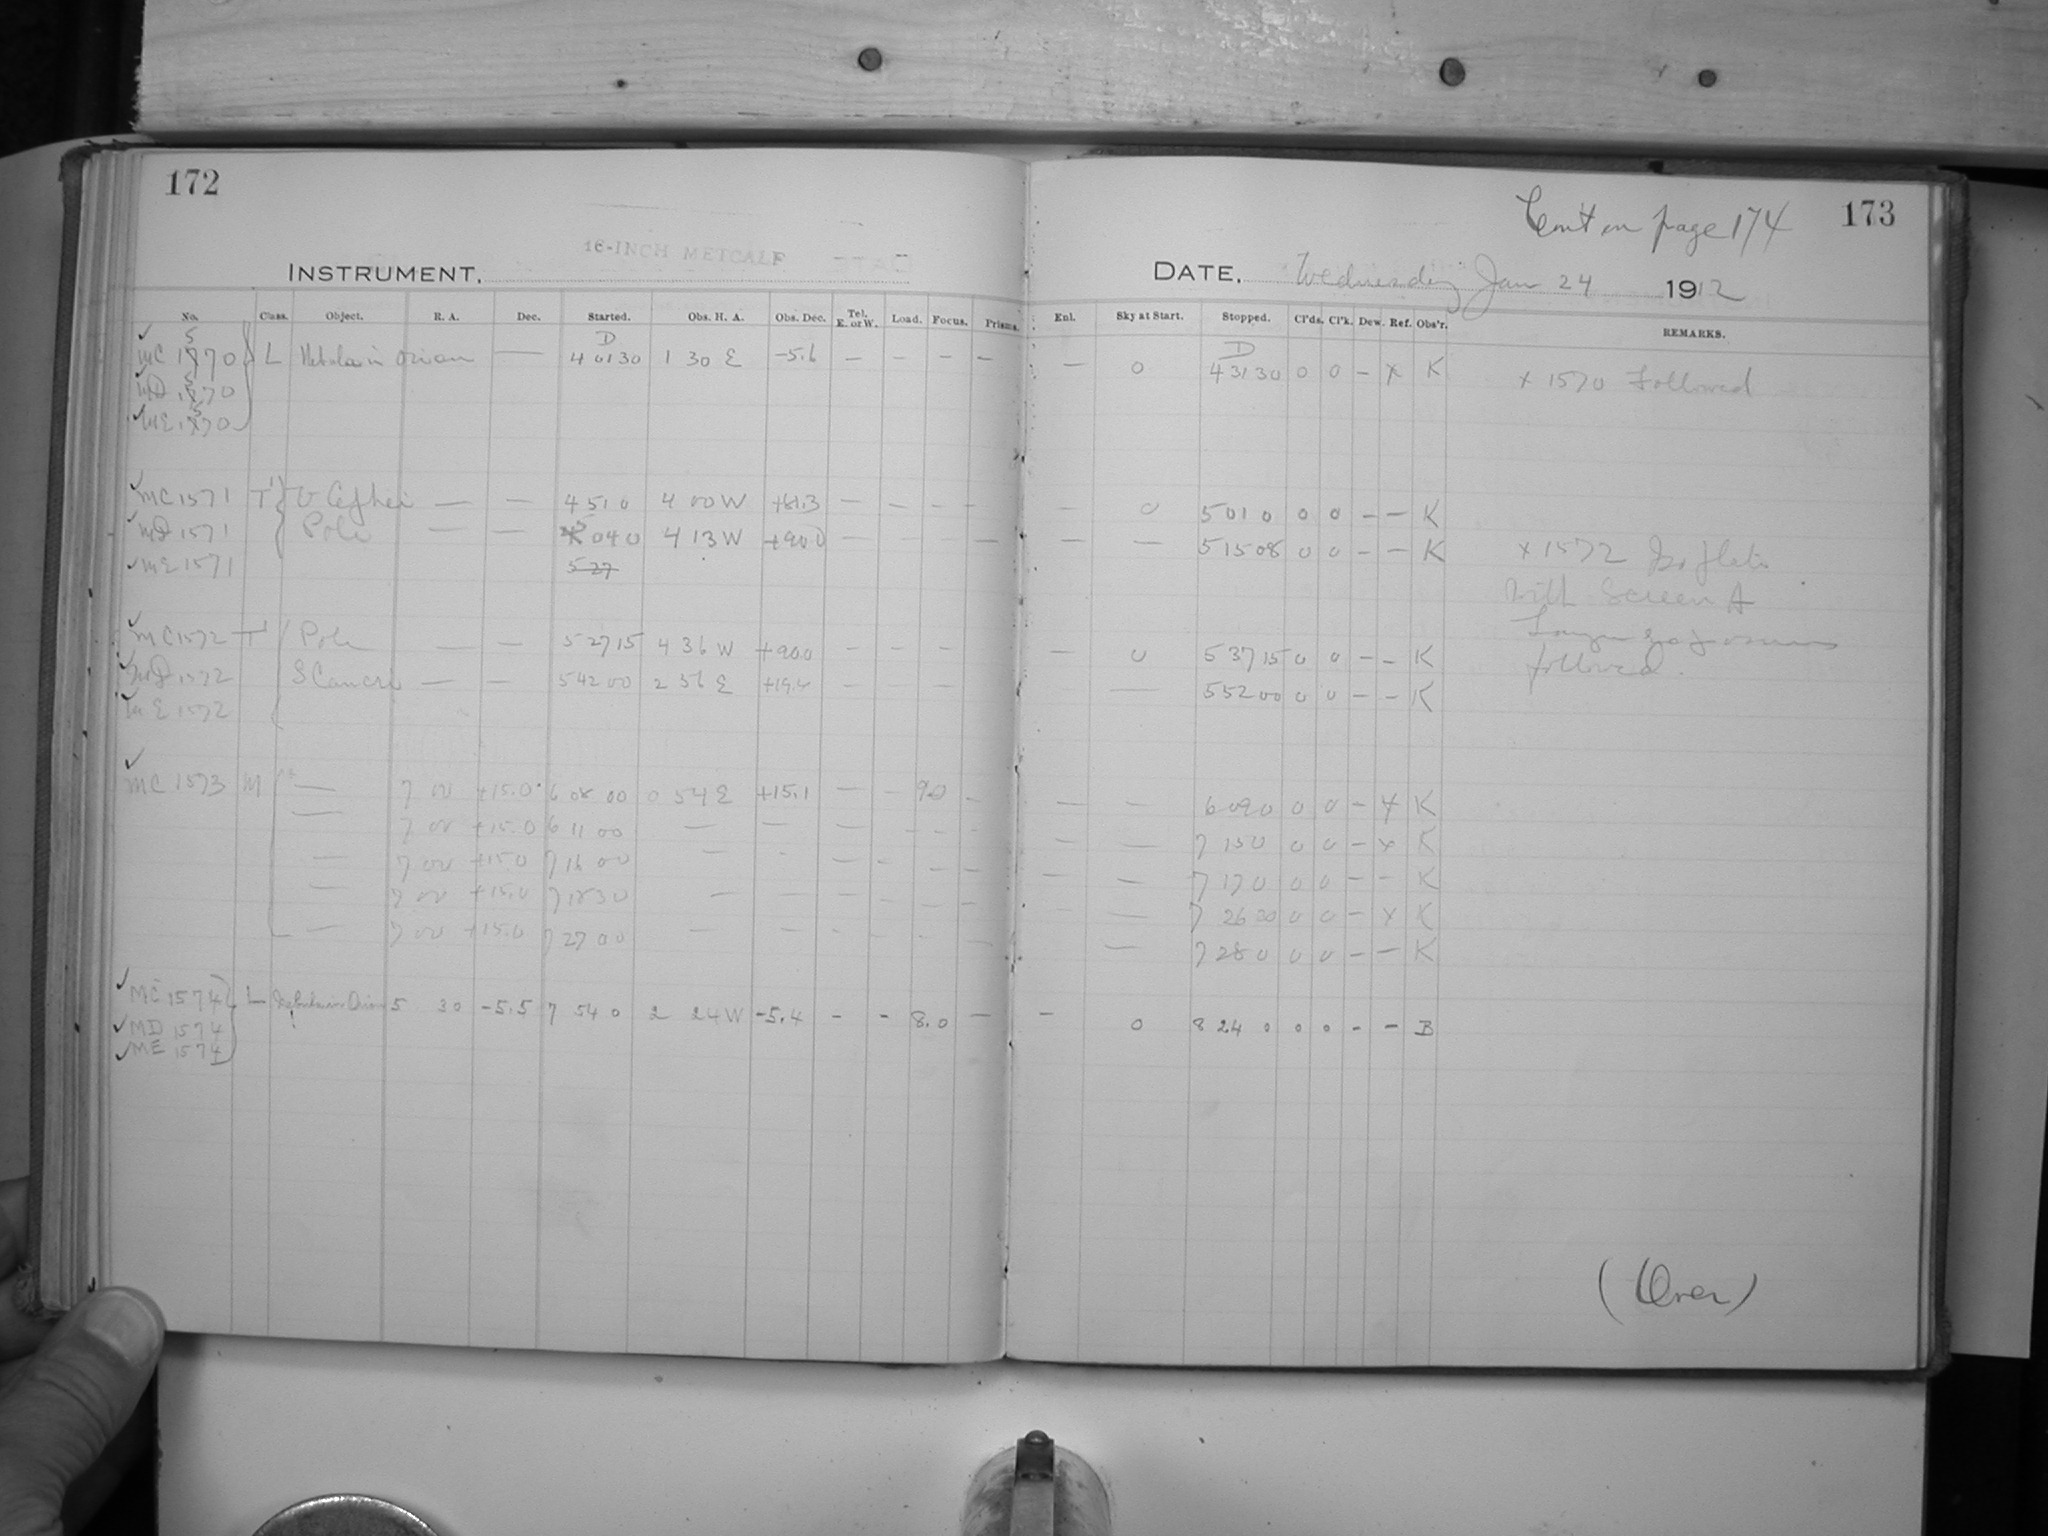 172
16-INCH METCALF
INSTRUMENT.
No. Class. Object. R. A. Dec. Started. Obs. H. A. Obs. Dec. Tel. E. or W. Load. Focus. Prisms.
MC 1570 L Nebula in Orion — D 4 01 30 1 30 E -5.6 — — — —
MD 1570
ME 1570
MC 1571 T' U Cephei — — 4 51 0 4 00 W +81.3 — — — —
MD 1571 Pole — — 5 04 0 4 13 W +90.0 — — — —
ME 1571 5 27
MC 1572 T' Pole — — 5 27 15 4 36 W +90.0 — — —
MD 1572 S Cancri — — 5 42 00 2 56 E — — —
ME 1572
MC 1573 M — 7 00 +15.0 6 08 00 0 54 E +15.1 — — 9.0 —
— 7 00 +15.0 6 11 00 — — — — — —
— 7 00 +15.0 7 16 00 — - — — — —
— 7 00 +15.0 7 18 30 — — — — — —
— 7 00 +15.0 7 27 00 — — — — — —
MC 1574 L Nebula in Orion 5 30 -5.5 7 54 0 2 24 W -5.4 - - 8.0 —
MD 1574
ME 1574
Cont on page 174 173
DATE. Wednesday Jan 24 1912
Enl. Sky at Start. Stopped. Cl'ds. Cl'k. Dew. Ref. Obs'r. REMARKS.
— 0 D 4 31 30 0 0 — x K x 1570 Followed
— 0 5 01 0 0 0 — — K
— — 5 15 08 0 0 — — K x 1572
with Screen A
— 0 5 37 15 0 0 — — K followed.
— 5 52 00 0 0 — — K
— — 6 09 0 0 0 — x K
— — 7 15 0 0 0 — x K
— — 7 17 0 0 0 — — K
— — 7 26 00 0 0 — x K
— 7 28 0 0 0 — — K
— 0 8 24 0 0 0 - - B
(Over)